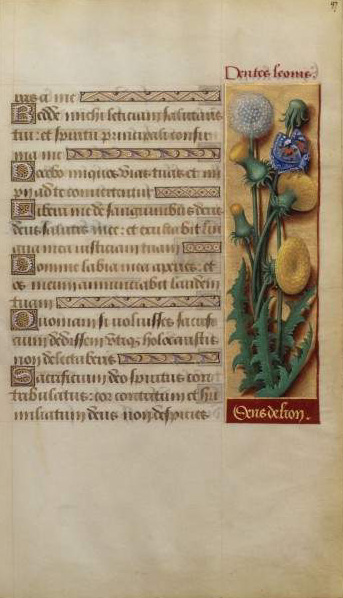 97
Dentes leonis.
uas a me
Redde michi leticiam salutaris
tui: et spiritu principali confir
ma me
Docebo iniquos vias tuas et im
pii ad te convertentur
Libera me de sanguinibus deus
deus salutis mee: et exultabit lin
gua mea iusticiam tuam
Domine labia mea aperies: et
os meum annunciabit laudem
tuam
Quoniam si voluisses sacrifi
cium dedissem utique holocaustis
non delectaberis
Sacrificium deo spiritus con
tribulatus: cor contritum et hu
miliatum deus non despicies
Dens de lion.